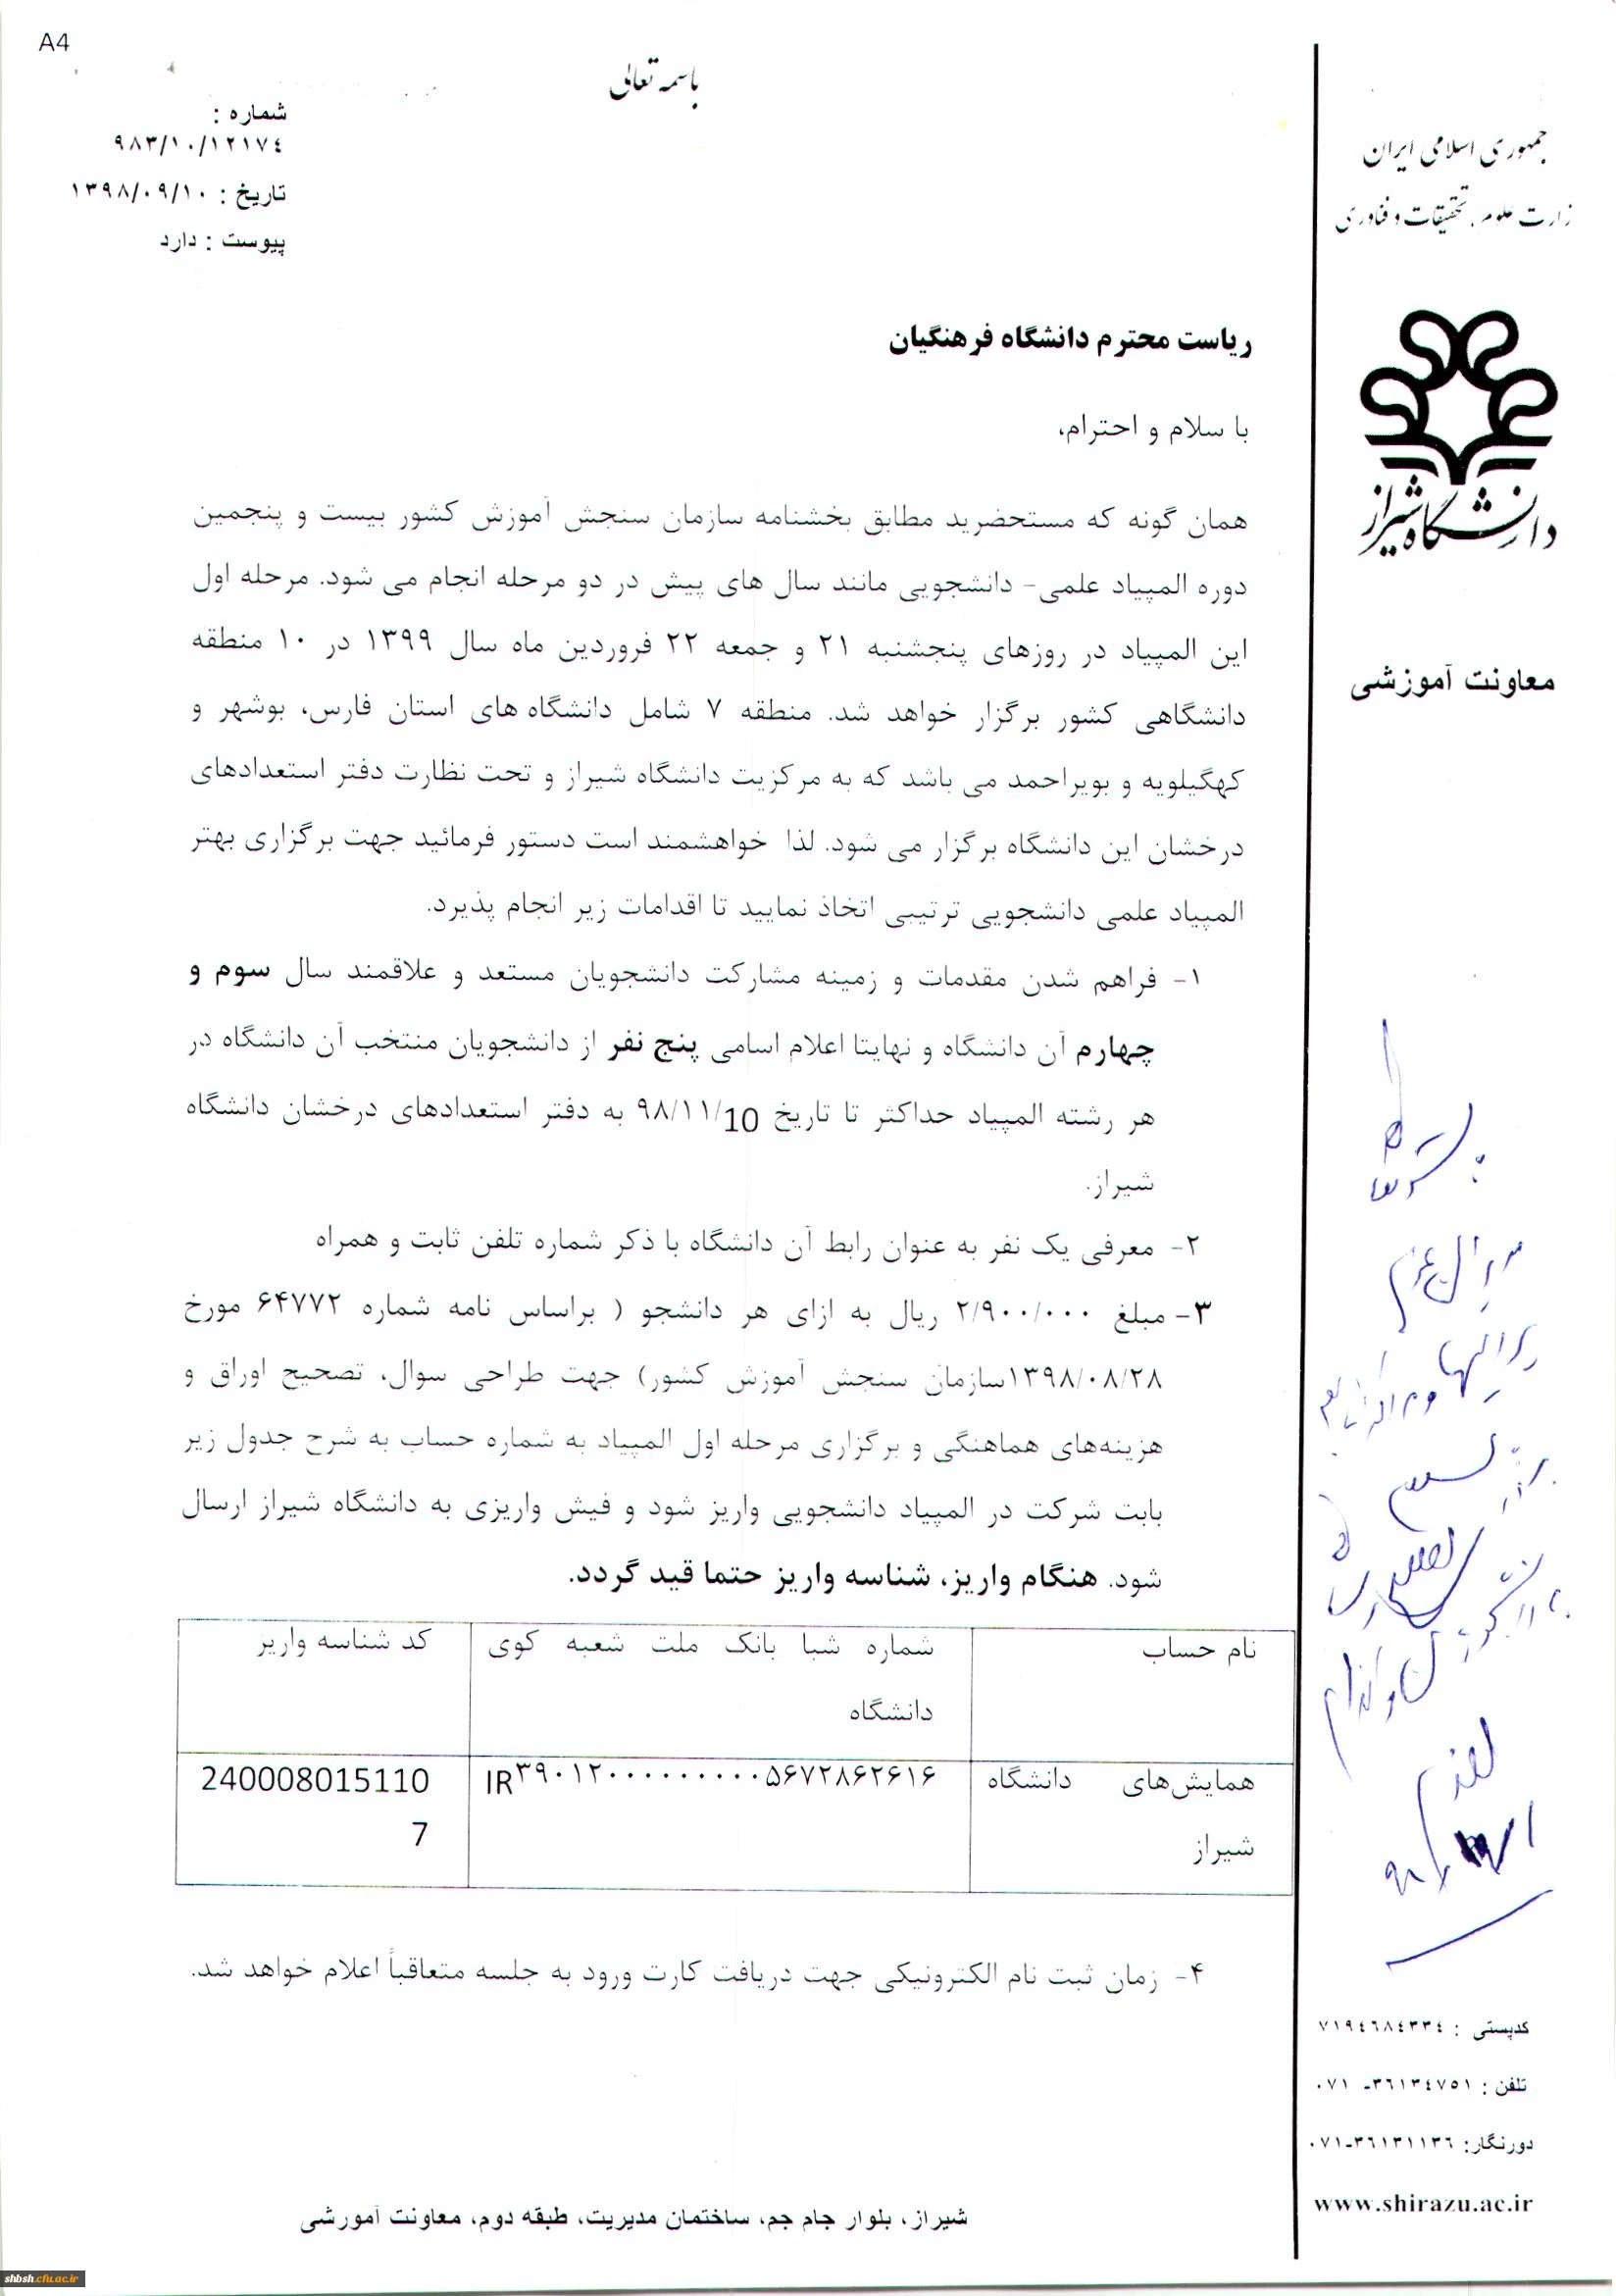 A4
باسمه تعالی
شماره :
۹۸۳/۱۰/۱۲۱۷٤
تاریخ : ۱۳۹۸/۰۹/۱۰
پیوست : دارد
جمهوری اسلامی ایران
زارت علوم، تحقیقات و فناوری
دانشگاه شیراز
معاونت آموزشی
ریاست محترم دانشگاه فرهنگیان
با سلام و احترام،
همان گونه که مستحضرید مطابق بخشنامه سازمان سنجش آموزش کشور بیست و پنجمین
دوره المپیاد علمی- دانشجویی مانند سال های پیش در دو مرحله انجام می شود. مرحله اول
این المپیاد در روزهای پنجشنبه ۲۱ و جمعه ۲۲ فروردین ماه سال ۱۳۹۹ در ۱۰ منطقه
دانشگاهی کشور برگزار خواهد شد. منطقه ۷ شامل دانشگاه های استان فارس، بوشهر و
کهگیلویه و بویراحمد می باشد که به مرکزیت دانشگاه شیراز و تحت نظارت دفتر استعدادهای
درخشان این دانشگاه برگزار می شود. لذا خواهشمند است دستور فرمائید جهت برگزاری بهتر
المپیاد علمی دانشجویی ترتیبی اتخاذ نمایید تا اقدامات زیر انجام پذیرد.
۱- فراهم شدن مقدمات و زمینه مشارکت دانشجویان مستعد و علاقمند سال سوم و
چهارم آن دانشگاه و نهایتا اعلام اسامی پنج نفر از دانشجویان منتخب آن دانشگاه در
هر رشته المپیاد حداکثر تا تاریخ 10/۹۸/۱۱ به دفتر استعدادهای درخشان دانشگاه
شیراز.
۲- معرفی یک نفر به عنوان رابط آن دانشگاه با ذکر شماره تلفن ثابت و همراه
۳- مبلغ ۲/۹۰۰/۰۰۰ ریال به ازای هر دانشجو ( براساس نامه شماره ۶۴۷۷۲ مورخ
۱۳۹۸/۰۸/۲۸سازمان سنجش آموزش کشور) جهت طراحی سوال، تصحیح اوراق و
هزینه‌های هماهنگی و برگزاری مرحله اول المپیاد به شماره حساب به شرح جدول زیر
بابت شرکت در المپیاد دانشجویی واریز شود و فیش واریزی به دانشگاه شیراز ارسال
شود. هنگام واریز، شناسه واریز حتما قید گردد.
نام حساب
شماره شبا بانک ملت شعبه کوی
دانشگاه
کد شناسه واریز
همایش‌های دانشگاه
شیراز
IR۳۹۰۱۲۰۰۰۰۰۰۰۰۰۰۵۶۷۲۸۶۲۶۱۶
240008015110
7
۴- زمان ثبت نام الکترونیکی جهت دریافت کارت ورود به جلسه متعاقباً اعلام خواهد شد.
کدپستی : ۷۱۹٤٦۸٤۳۳٤
تلفن : ۳٦۱۳٤۷٥۱- ۰۷۱
دورنگار: ۳٦۱۳۱۱۳٦-۰۷۱
www.shirazu.ac.ir
شیراز، بلوار جام جم، ساختمان مدیریت، طبقه دوم، معاونت آمورشی
shbsh.cfu.ac.ir